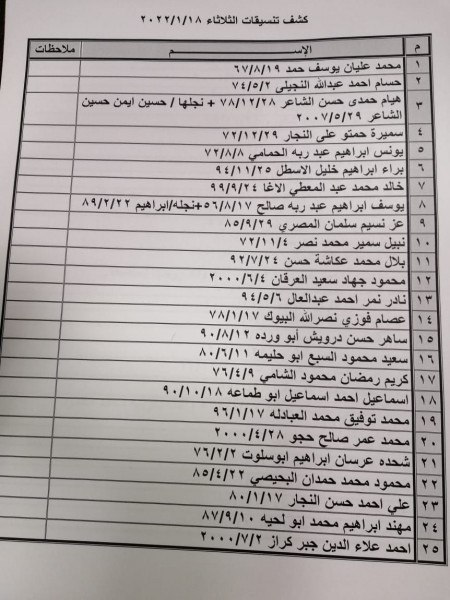 كشف تنسيقات الثلاثاء ٢٠٢٢/١/١٨
م الإســـــم ملاحظات
١ محمد عليان يوسف حمد ٦٧/٨/١٩
٢ حسام احمد عبدالله النجيلى ٧٤/٥/٢
٣ هيام حمدى حسن الشاعر ٧٨/١٢/٢٨ + نجلها / حسين ايمن حسين
الشاعر ٢٠٠٧/٥/٢٩
٤ سميرة حمتو على النجار ٧٢/١٢/٢٩
٥ يونس ابراهيم عبد ربه الحمامي ٧٢/٨/٨
٦ براء ابراهيم خليل الاسطل ٩٤/١١/٢٥
٧ خالد محمد عبد المعطي الاغا ٩٩/٩/٢٤
٨ يوسف ابراهيم عبد ربه صالح ٥٦/٨/١٧+نجله/ابراهيم ٨٩/٢/٢٢
٩ عز نسيم سلمان المصري ٨٥/٩/٢٩
١٠ نبيل سمير محمد نصر ٧٢/١١/٤
١١ بلال محمد عكاشة حسن ٩٢/٧/٢٤
١٢ محمود جهاد سعيد العرقان ٢٠٠٠/٦/٤
١٣ نادر نمر احمد عبدالعال ٩٤/٥/٦
١٤ عصام فوزي نصرالله البيوك ٧٨/١/١٧
١٥ ساهر حسن درويش أبو ورده ٩٠/٨/١٢
١٦ سعيد محمود السبع ابو حليمه ٨٠/٦/١١
١٧ كريم رمضان محمود الشامي ٧٦/٤/٩
١٨ اسماعيل احمد اسماعيل ابو طماعه ٩٠/١٠/١٨
١٩ محمد توفيق محمد العبادله ٩٦/١/١٧
٢٠ محمد عمر صالح حجو ٢٠٠٠/٤/٢٨
٢١ شحده عرسان ابراهيم ابوسلوت ٧٦/٢/٢
٢٢ محمود محمد حمدان البحيصي ٨٥/٤/٢٢
٢٣ علي احمد حسن النجار ٨٠/١/١٧
٢٤ مهند ابراهيم محمد ابو لحيه ٨٧/٩/١٠
٢٥ احمد علاء الدين جبر كراز ٢٠٠٠/٧/٢